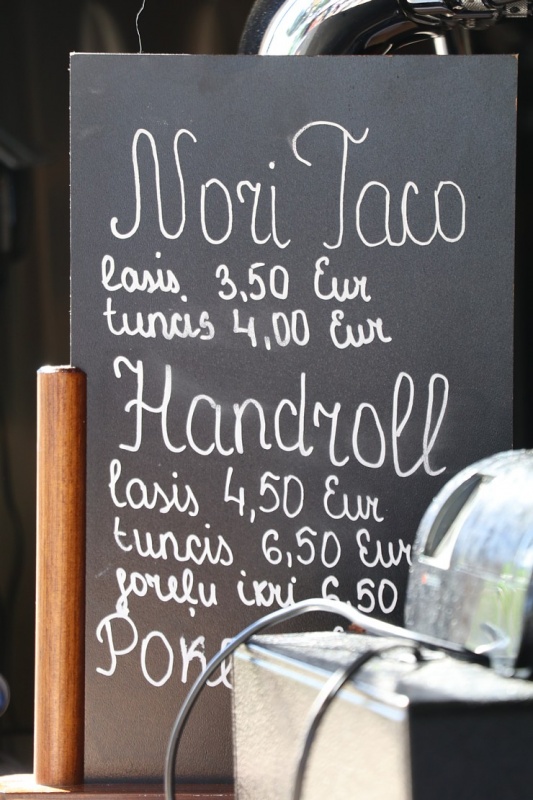 Nori Taco
lasis 3,50 Eur
tuncis 4,00 Eur
Handroll
lasis 4,50 Eur
tuncis 6,50 Eur
foreļu ikri 6,50